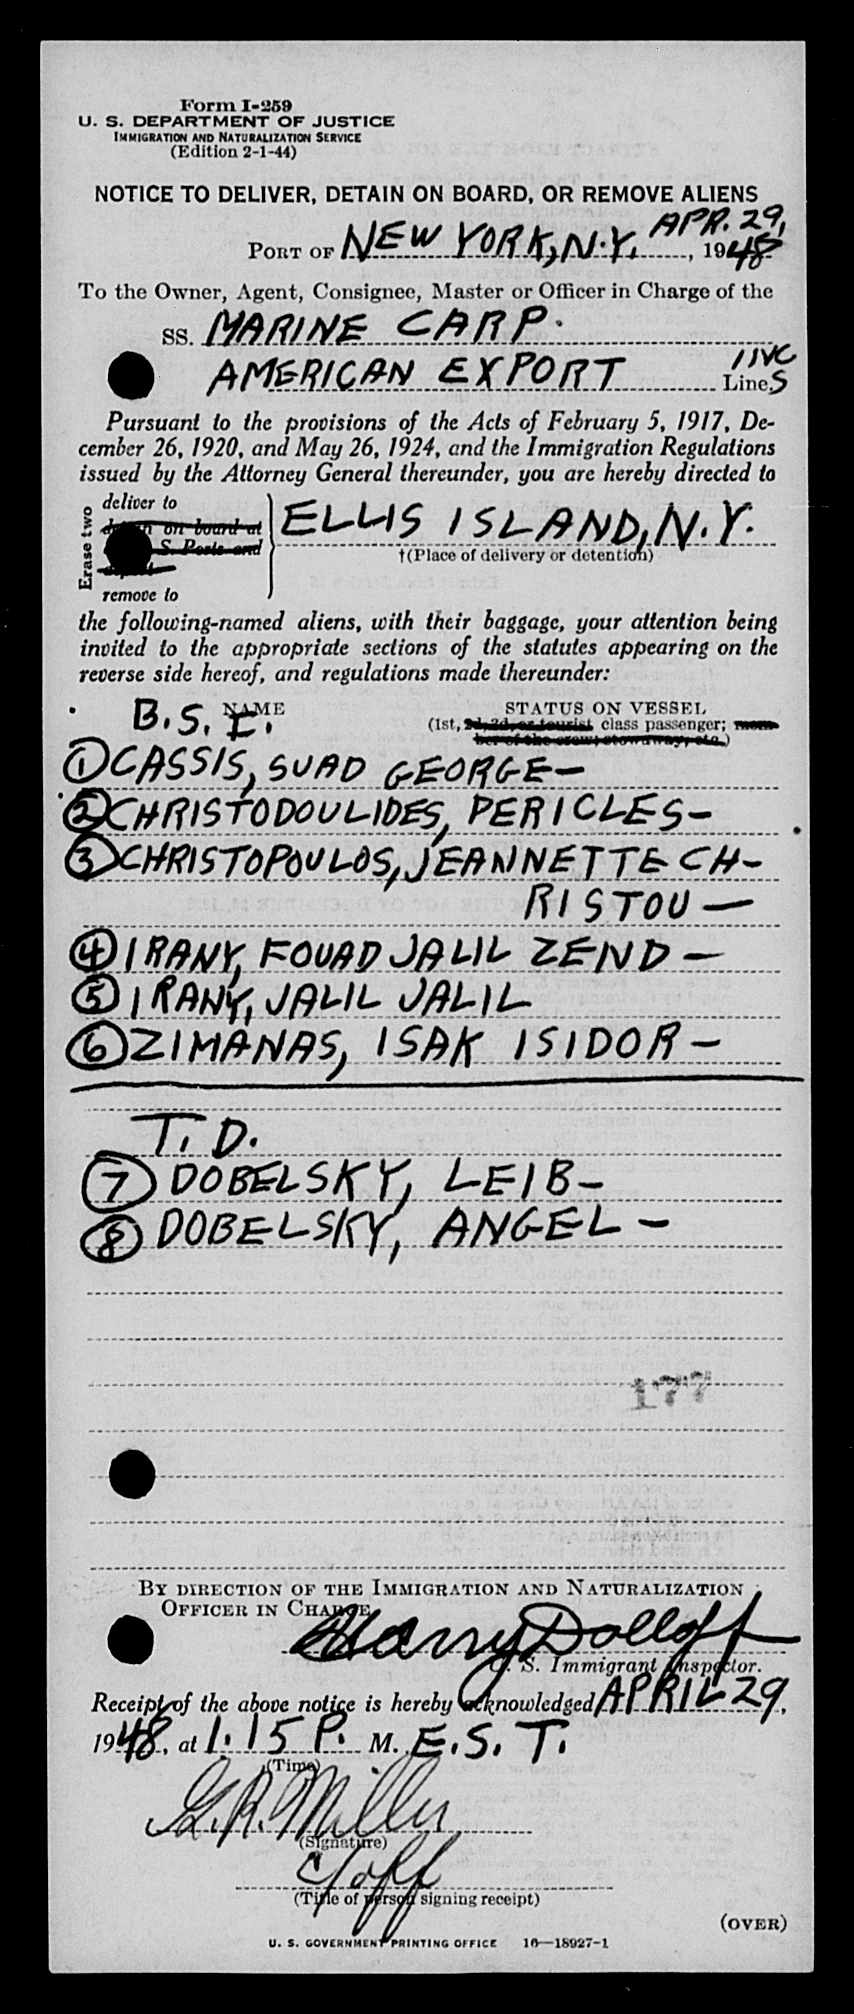 Form I-259
U. S. DEPARTMENT OF JUSTICE
IMMIGRATION AND NATURALIZATION SERVICE
(Edition 2-1-44)
NOTICE TO DELIVER, DETAIN ON BOARD, OR REMOVE ALIENS
APR. 29,
PORT OF NEW YORK, N.Y., 1948
To the Owner, Agent, Consignee, Master or Officer in Charge of the
SS. MARINE CARP.
AMERICAN EXPORT Line
Pursuant to the provisions of the Acts of February 5, 1917, De-
cember 26, 1920, and May 26, 1924, and the Immigration Regulations
issued by the Attorney General thereunder, you are hereby directed to
Erase two
deliver to
on board at
S. Ports and
remove to
ELLIS ISLAND, N.Y.
†(Place of delivery or detention)
the following-named aliens, with their baggage, your attention being
invited to the appropriate sections of the statutes appearing on the
reverse side hereof, and regulations made thereunder:
B.S.I. NAME STATUS ON VESSEL
(1st, 2d, 3d, or tourist class passenger; mem-
ber of the crew; stowaway, etc.)
1 CASSIS, SUAD GEORGE-
2 CHRISTODOULIDES, PERICLES-
3 CHRISTOPOULOS, JEANNETTE CH-
RISTOU-
4 IRANY, FOUAD JALIL ZEND-
5 IRANY, JALIL JALIL
6 ZIMANAS, ISAK ISIDOR-
T.D.
7 DOBELSKY, LEIB-
8 DOBELSKY, ANGEL-
177
BY DIRECTION OF THE IMMIGRATION AND NATURALIZATION
OFFICER IN CHARGE
Harry Dolloff
U. S. Immigrant Inspector.
Receipt of the above notice is hereby acknowledged APRIL 29,
1948, at 1.15 P. M. E.S.T.
(Time)
G.R. Miller
(Signature)
(Title of person signing receipt)
(OVER)
U. S. GOVERNMENT PRINTING OFFICE 16—18927-1